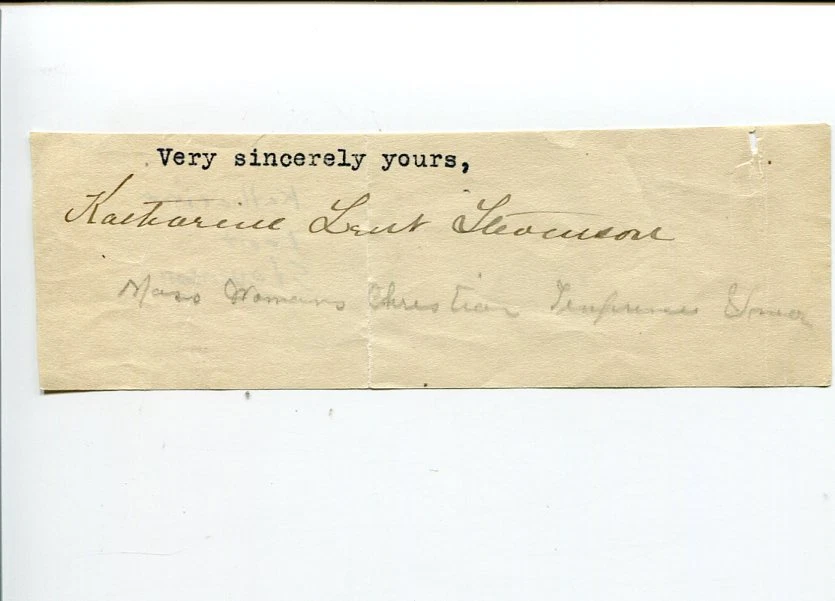 Very sincerely yours,
Katharine Lent Stevenson
Mass Womans Christian Temperance Union